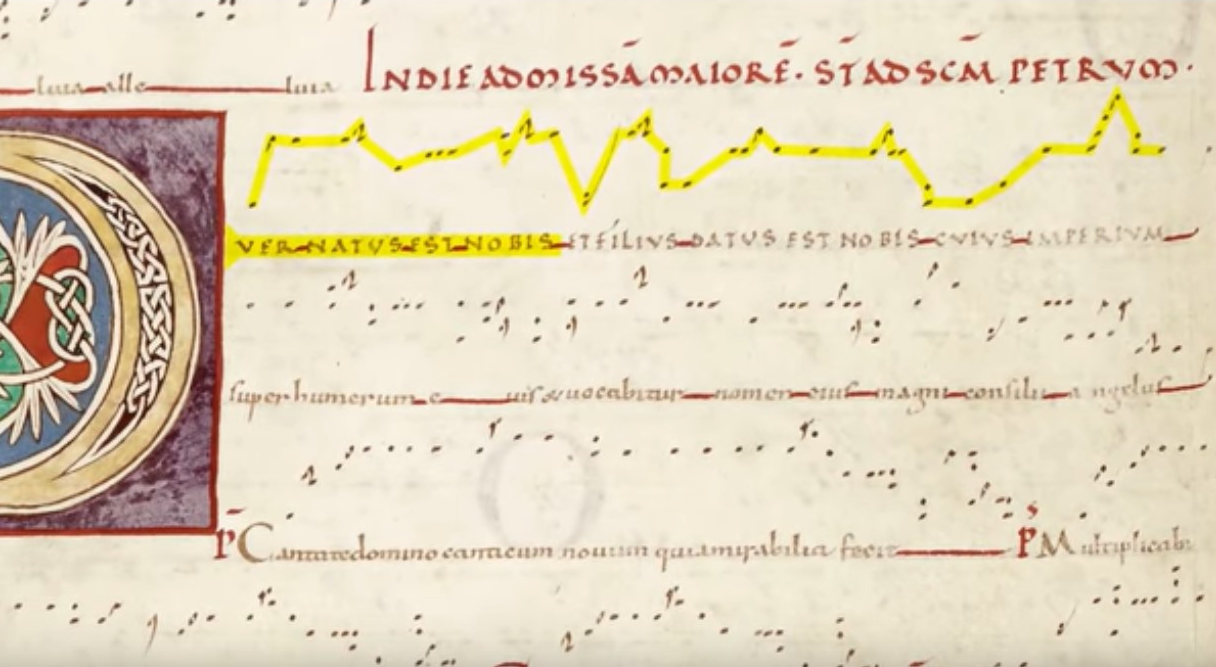 luia alle luia
INDIE AD MISSĀ MAIORĒ · ST̄ AD SC̄M PETRVM ·
VER NATVS EST NOBIS ET FÍLIVS DATVS EST NOBIS CVIVS IMPERIVM
super humerum e ius & uocabitur nomen eius magni consilii angelus
P̄ Cantate domino canticum nouum quia mirabilia fecit P̄ S Multiplicabi